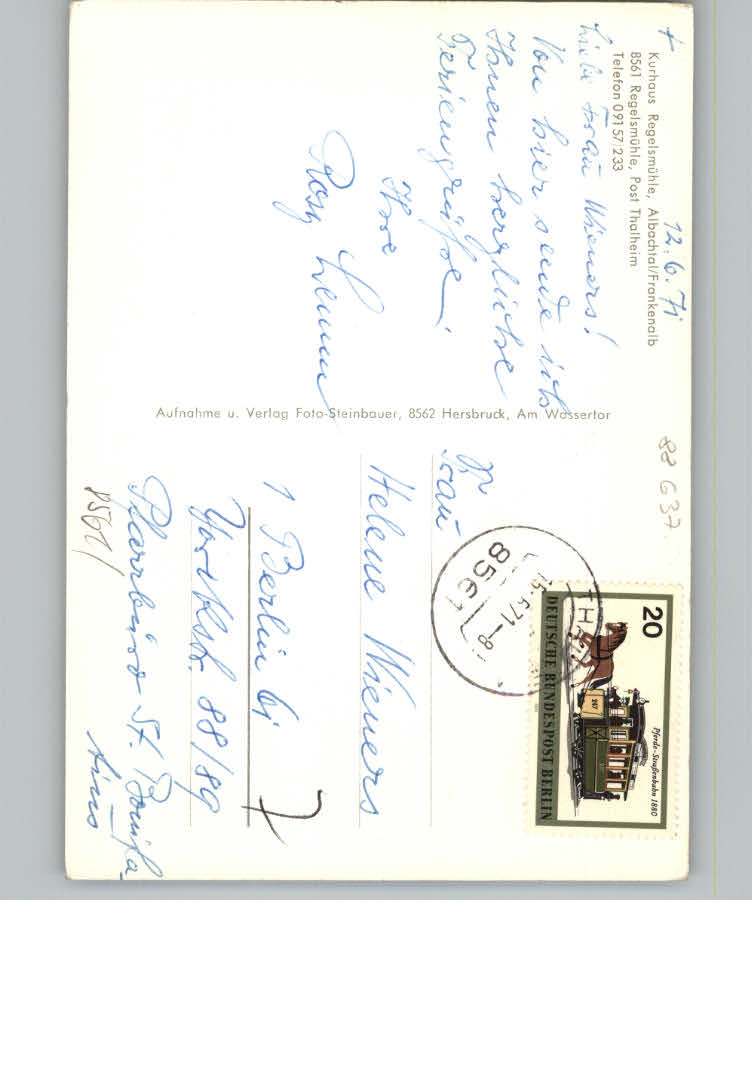 Kurhaus Regelsmühle, Albachtal/Frankenalb
8561 Regelsmühle, Post Thalheim
Telefon 09157/233
+ 12.6.71
Liebe Frau Wieners!
Von hier sende ich
Ihnen herzliche
Feriengrüße.
Ihre
Rosy
Aufnahme u. Verlag Foto-Steinbauer, 8562 Hersbruck, Am Wassertor
88 G 37.
20
Pferde-Straßenbahn 1880
247
DEUTSCHE BUNDESPOST BERLIN
TH
.6.71-8
8561
Frau
Helene Wieners
1 Berlin 61
7
Yorkstr. 88/89
Pfarrbüro St. Bonifa-
tius
8561/